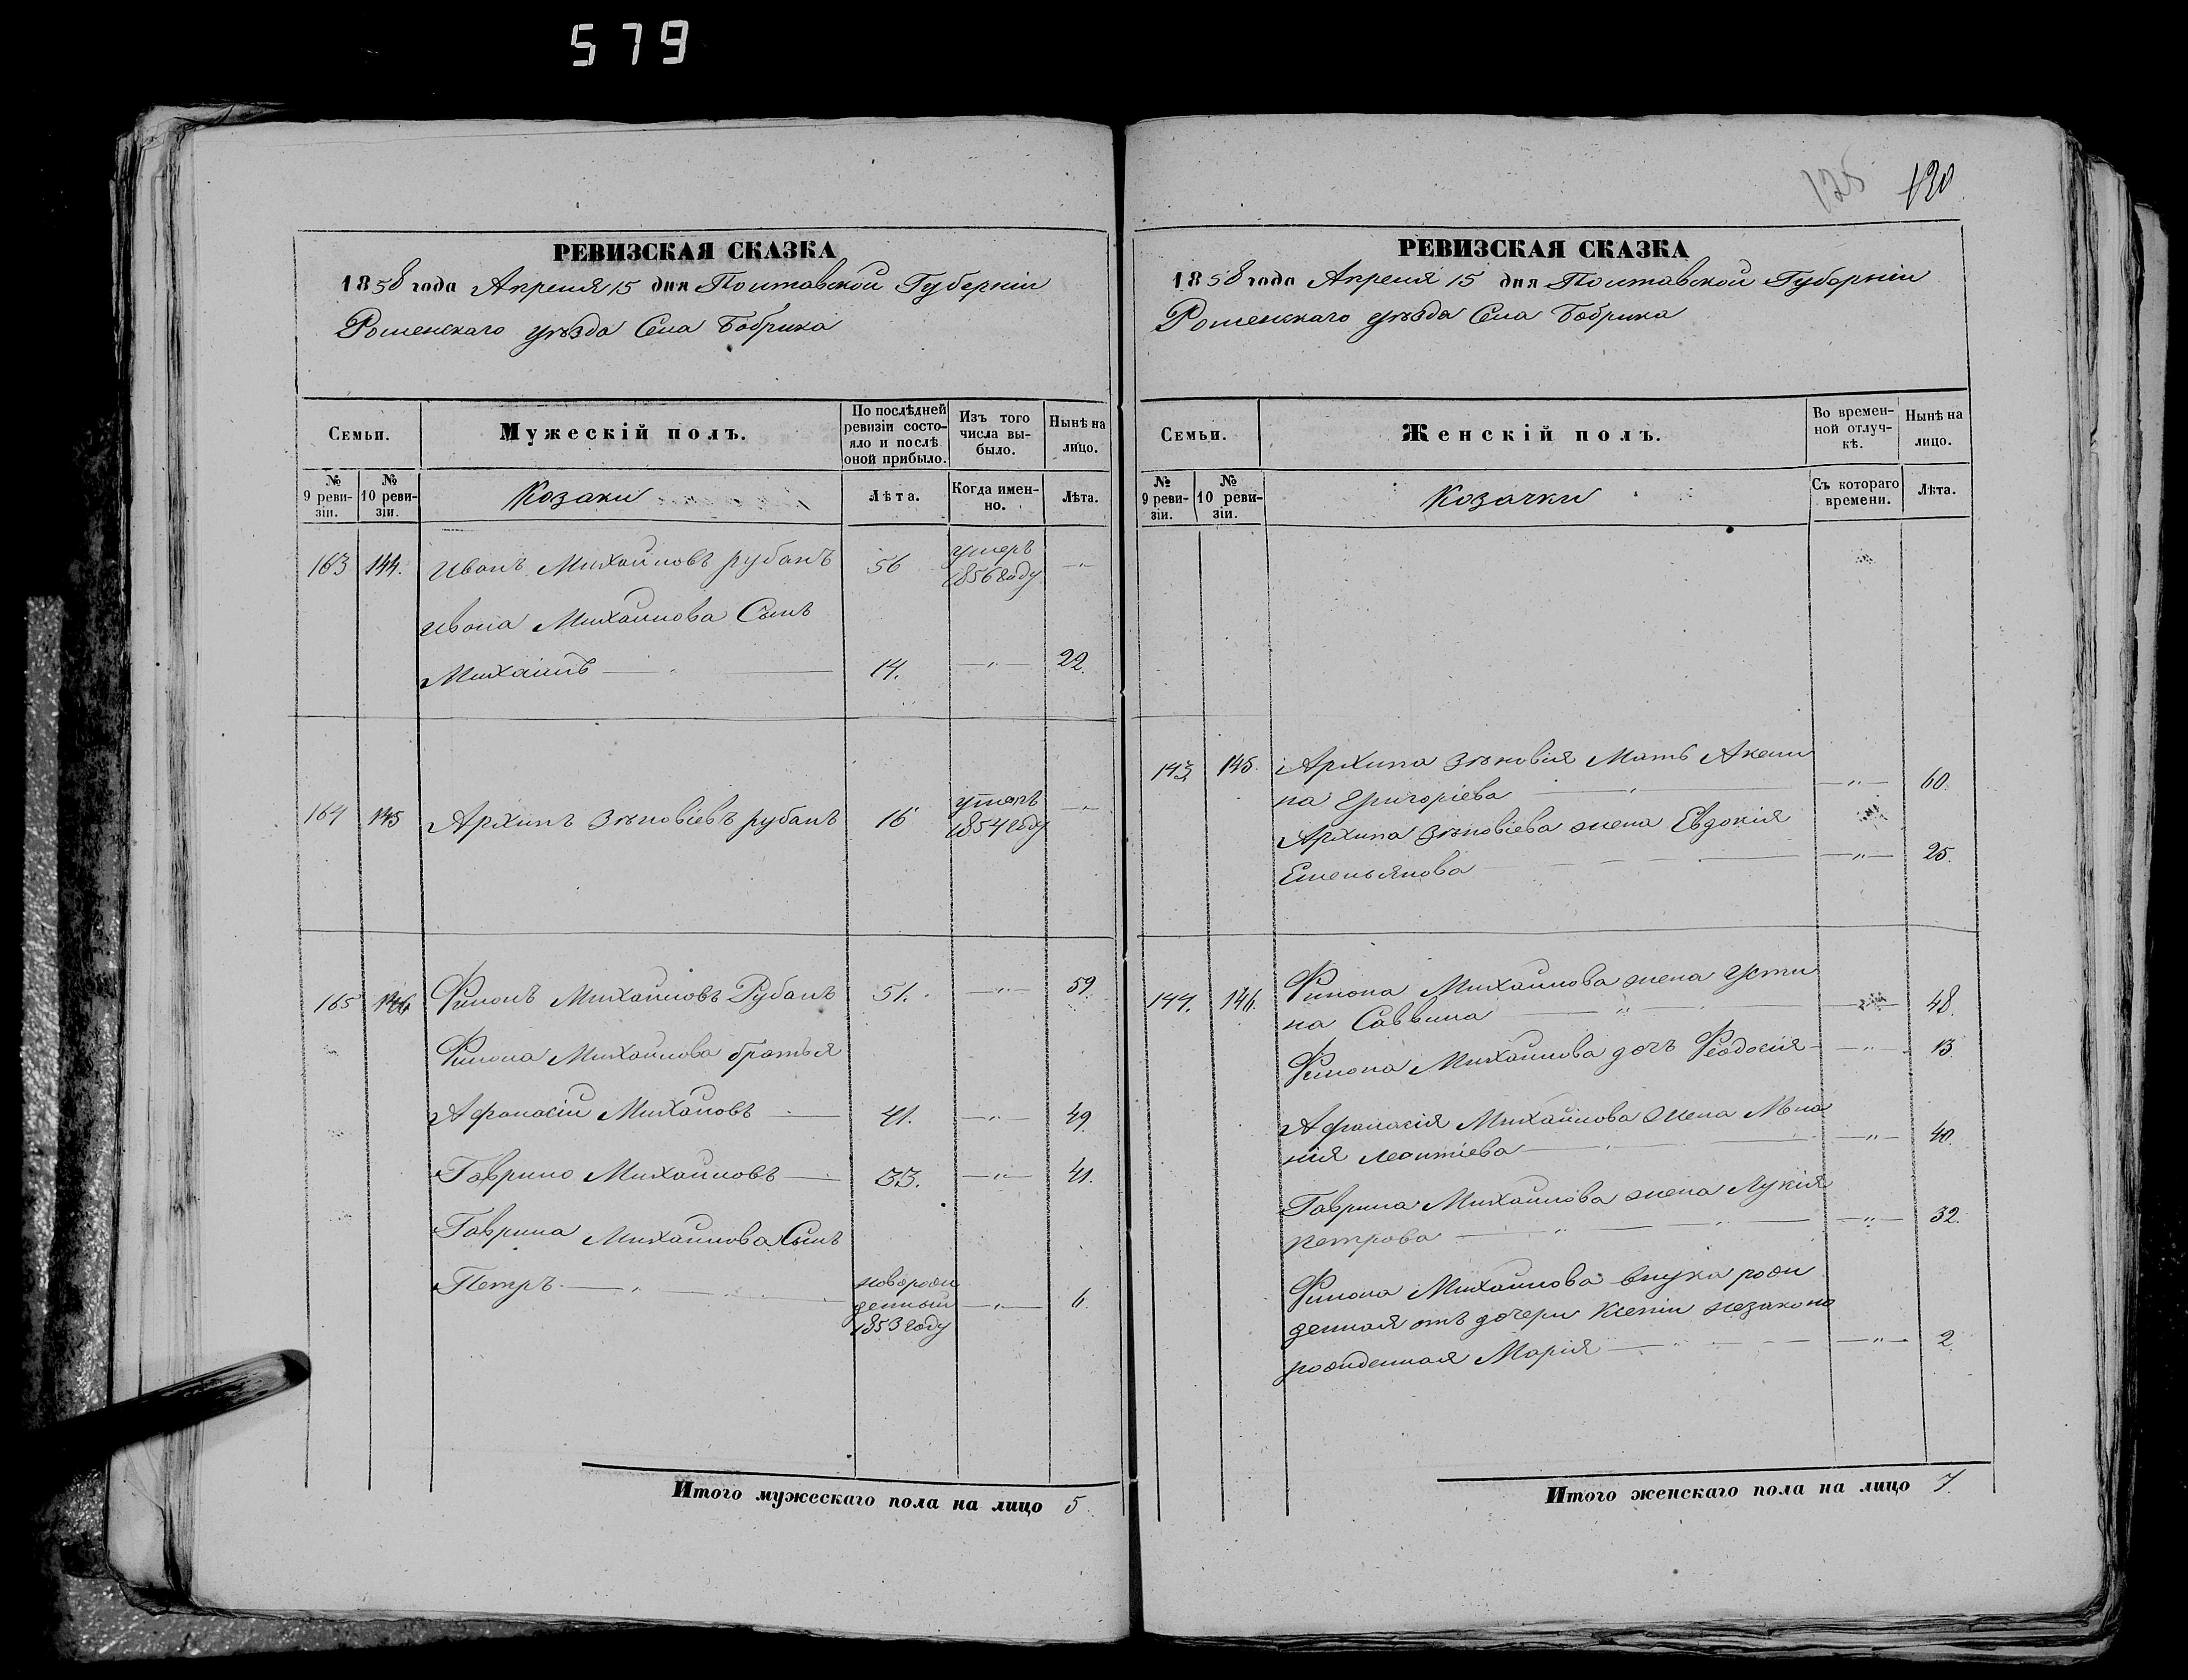 579
РЕВИЗСКАЯ СКАЗКА
1858 года Апреля 15 дня Полтавской Губерніи
Роменскаго уѣзда Села Бобрика
Семьи.
Мужескій полъ.
По послѣдней ревизіи состояло и послѣ оной прибыло.
Изъ того числа выбыло.
Нынѣ на лицо.
№ 9 ревизіи.
№ 10 ревизіи.
Козаки
Лѣта.
Когда именно.
Лѣта.
163 144. Иванъ Михайловъ рубанъ 56 умеръ 1856 году —"—
Ивана Михайлова Сынъ
Михаилъ — " — 14. —"— 22.
164 145 Архипъ Зѣновіевъ рубанъ 16 умеръ 1854 году —"—
165 146 Филонъ Михайловъ Рубанъ 51. —"— 59.
Филона Михайлова братья
Афанасій Михаиловъ — 41. —"— 49.
Гаврило Михайловъ — 33. —"— 41.
Гаврила Михайлова Сынъ
Петръ — " — новорожденный 1853 году —"— 6.
Итого мужескаго пола на лицо 5
125 130
РЕВИЗСКАЯ СКАЗКА
1858 года Апреля 15 дня Полтавской Губерніи
Роменскаго уѣзда Села Бобрика
Семьи.
Женскій полъ.
Во временной отлучкѣ.
Нынѣ на лицо.
№ 9 ревизіи.
№ 10 ревизіи.
Козачки
Съ котораго времени.
Лѣта.
143 145. Архипа Зѣновія Мать Акели
на Григоріева — " — —"— 60.
Архипа Зѣновіева жена Евдокія
Емельянова — —"— 25.
144. 146. Филона Михайлова жена Усти
на Саввина — " — —"— 48.
Филона Михайлова дочь Феодосія — —"— 13.
Афанасія Михайлова жена Мела
нія Леонтіева — " — —"— 40.
Гаврила Михайлова жена Лукія
петрова — " — " — —"— 32.
Филона Михайлова внука рож
денная отъ дочери Ксеніи незаконо
рожденная Марія — " — —"— 2.
Итого женскаго пола на лицо 7.